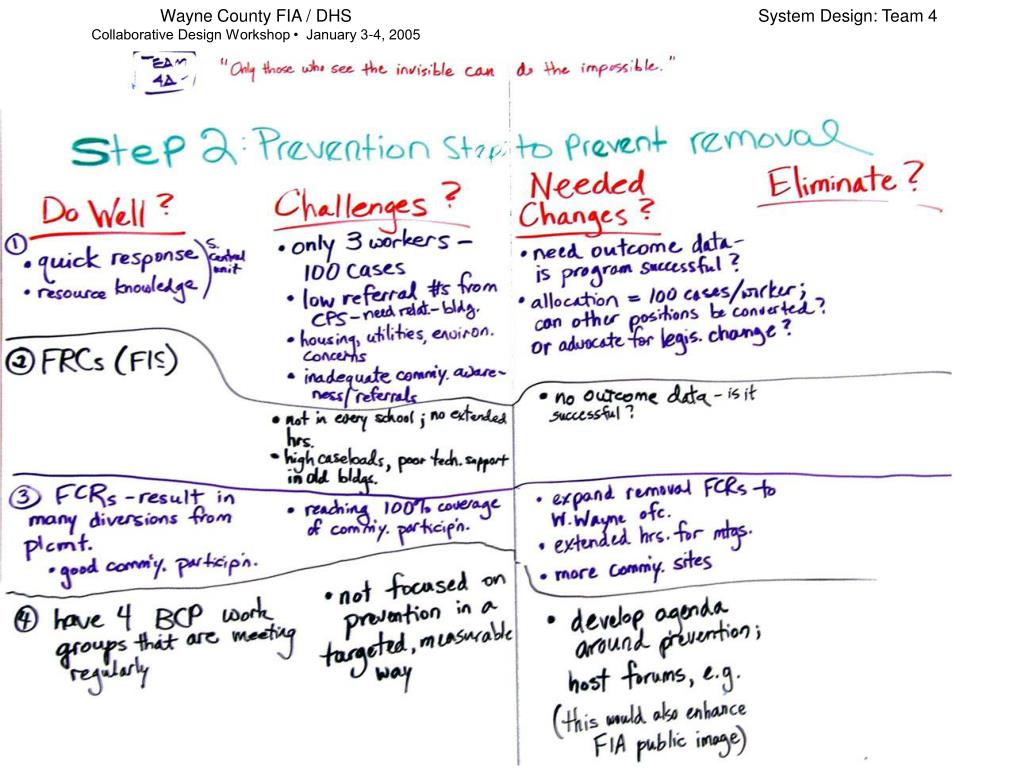 Wayne County FIA / DHS
System Design: Team 4
Collaborative Design Workshop • January 3-4, 2005
TEAM
4A
"Only those who see the invisible can do the impossible."
Step 2: Prevention Step to prevent removal
Do Well?
① • quick response
• resource knowledge
S. Central unit
② FRCs (FIS)
③ FCRs - result in
many diversions from
plcmt.
• good comm'y. particip'n.
④ have 4 BCP work
groups that are meeting
regularly
Challenges?
• only 3 workers –
100 cases
• low referral #s from
CPS – need relat.-bldg.
• housing, utilities, environ.
concerns
• inadequate comm'y. aware-
ness/referrals
• not in every school; no extended
hrs.
• high caseloads, poor tech. support
in old bldgs.
• reaching 100% coverage
of comm'y. particip'n.
• not focused on
prevention in a
targeted, measurable
way
Needed
Changes?
• need outcome data –
is program successful?
• allocation = 100 cases/worker;
can other positions be converted?
or advocate for legis. change?
• no outcome data – is it
successful?
• expand removal FCRs to
W. Wayne ofc.
• extended hrs. for mtgs.
• more comm'y. sites
• develop agenda
around prevention;
host forums, e.g.
(this would also enhance
FIA public image)
Eliminate?